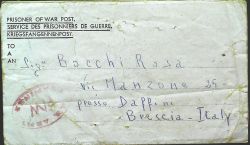 PRISONER OF WAR POST.
SERVICE DES PRISONNIERS DE GUERRE.
KRIEGSFANGENNENPOST.
TO
A
AN
Sig. Bocchi Rosa
Via Manzone 35
presso Daffini
Brescia - Italy